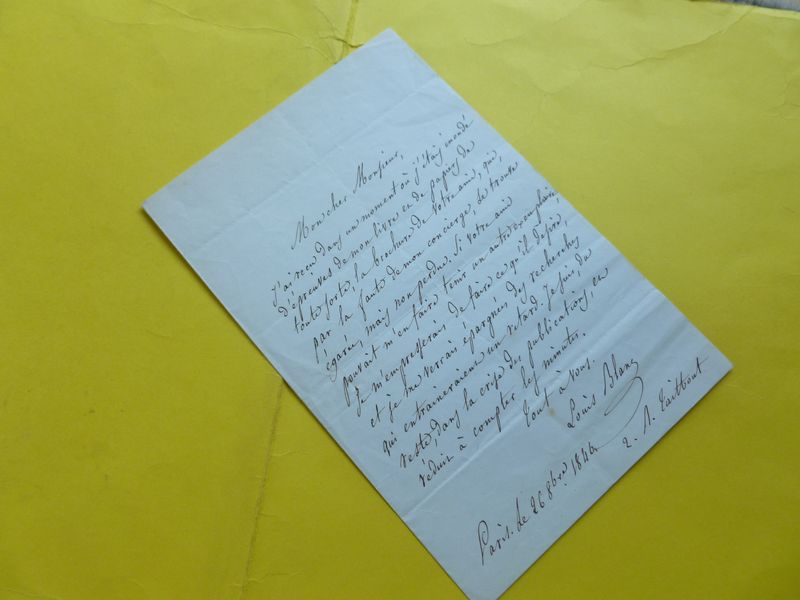 Mon cher Monsieur,
J'ai reçu dans un moment où j'étais inondé
d'épreuves de mon livre et de papiers de
toute sorte, la brochure de votre ami, que,
par la faute de mon concierge, se trouve
égarée, mais non perdue. Si votre ami
pouvait m'en faire tenir un autre exemplaire,
je m'empresserais de faire ce qu'il désire
et je me verrais épargnées des recherches
qui entraîneraient un retard. Je suis, du
reste, dans la crise des publications, et
réduit à compter les minutes.
Tout à vous.
Louis Blanc
2. r. Taitbout
Paris. Le 26 8bre 1844